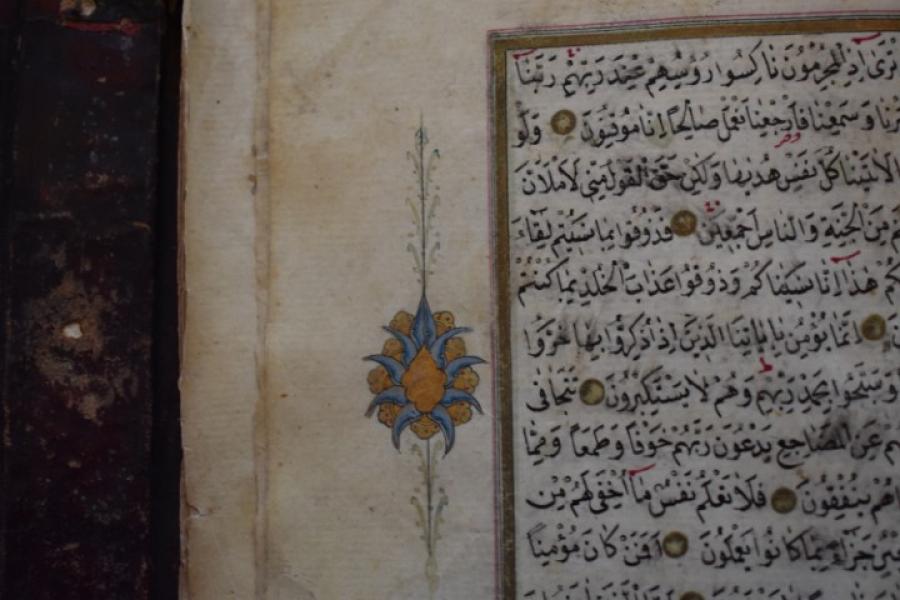 ترى اذ المجرمون ناكسوا رؤسهم عند ربهم ربنا
وسمعنا فارجعنا نعمل صالحا انا موقنون ولو
لاتينا كل نفس هديها ولكن حق القول مني لاملان
من الجنة والناس اجمعين فذوقوا بما نسيتم لقاء
هذا انا نسيناكم وذوقوا عذاب الخلد بما كنتم
انما يؤمن باياتنا الذين اذا ذكروا بها خروا
وسبحوا بحمد ربهم وهم لا يستكبرون تتجافى
عن المضاجع يدعون ربهم خوفا وطمعا ومما
ينفقون فلا تعلم نفس ما اخفي لهم من
جزاء بما كانوا يعملون افمن كان مؤمنا